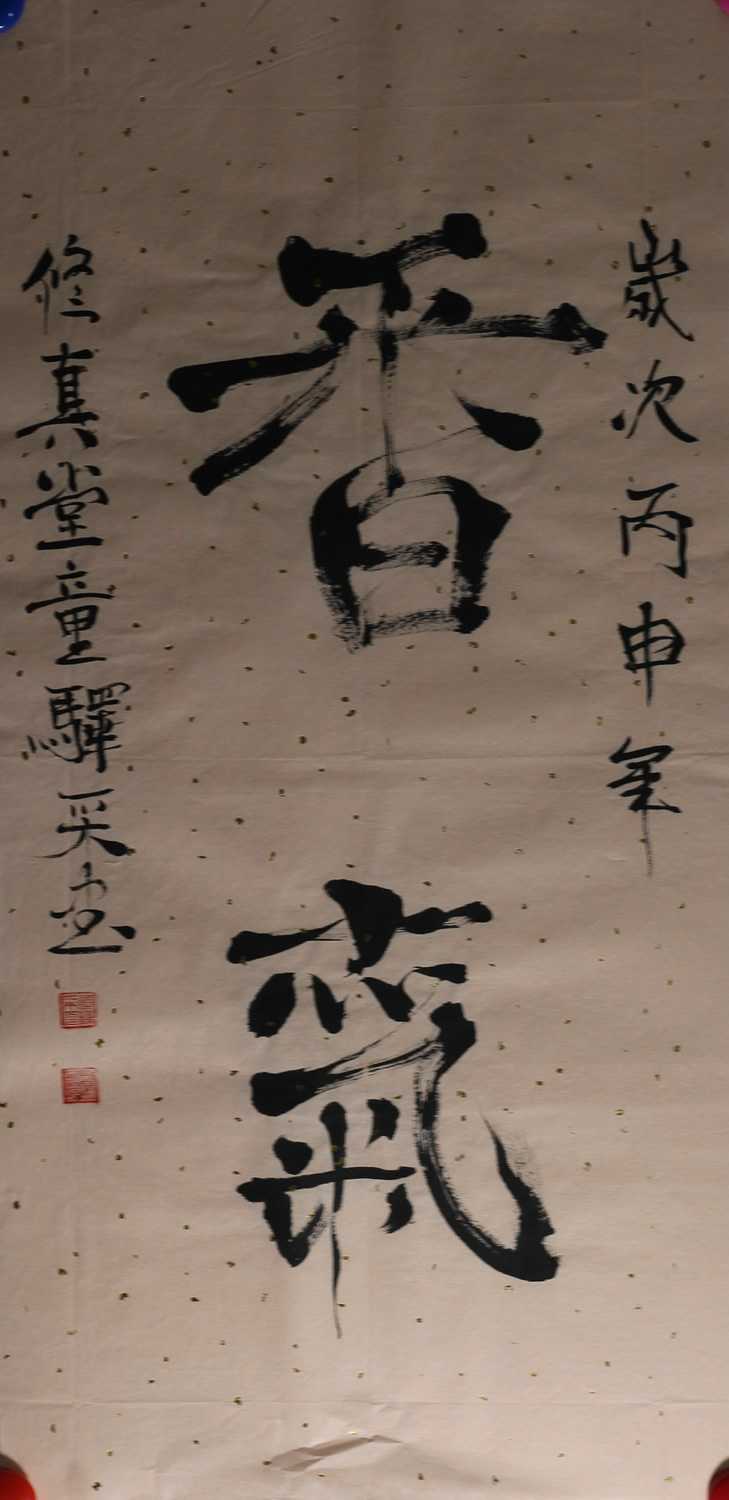 歲次丙申年
香氣
修真堂童驛采書